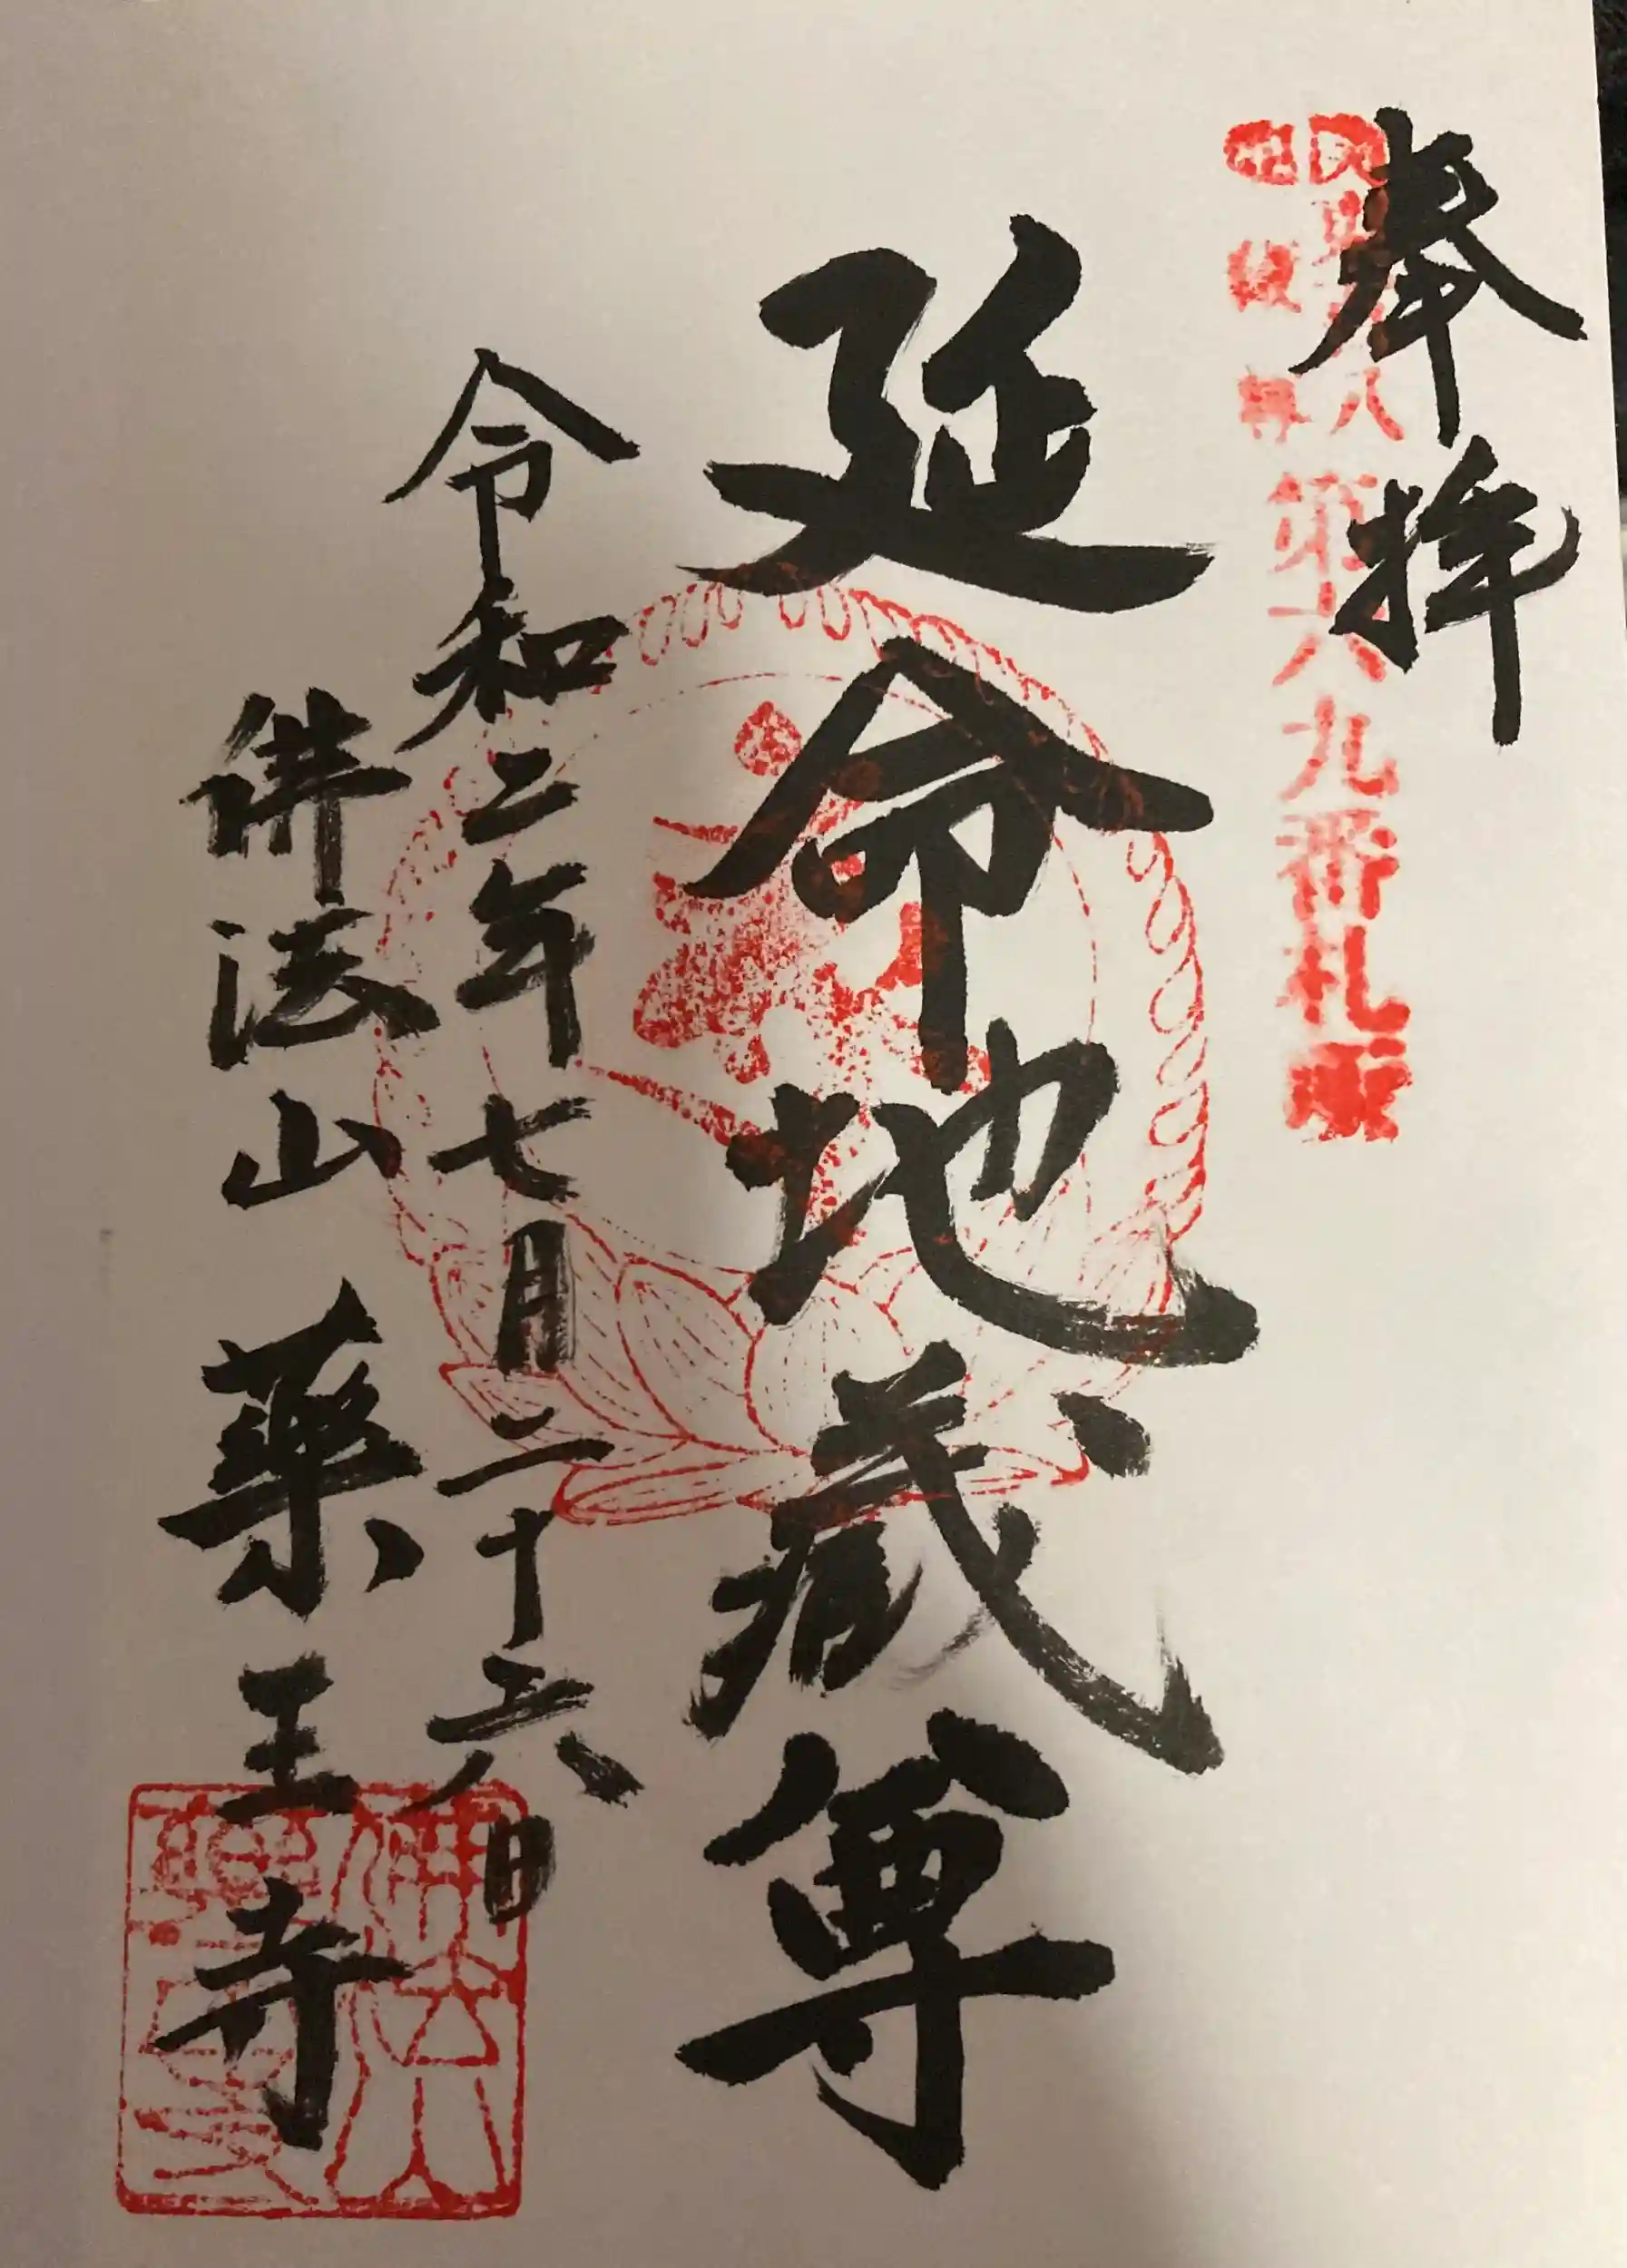 奉拝
第六九番札所
延命地蔵尊
令和二年七月二十六日
佛法山 薬王寺